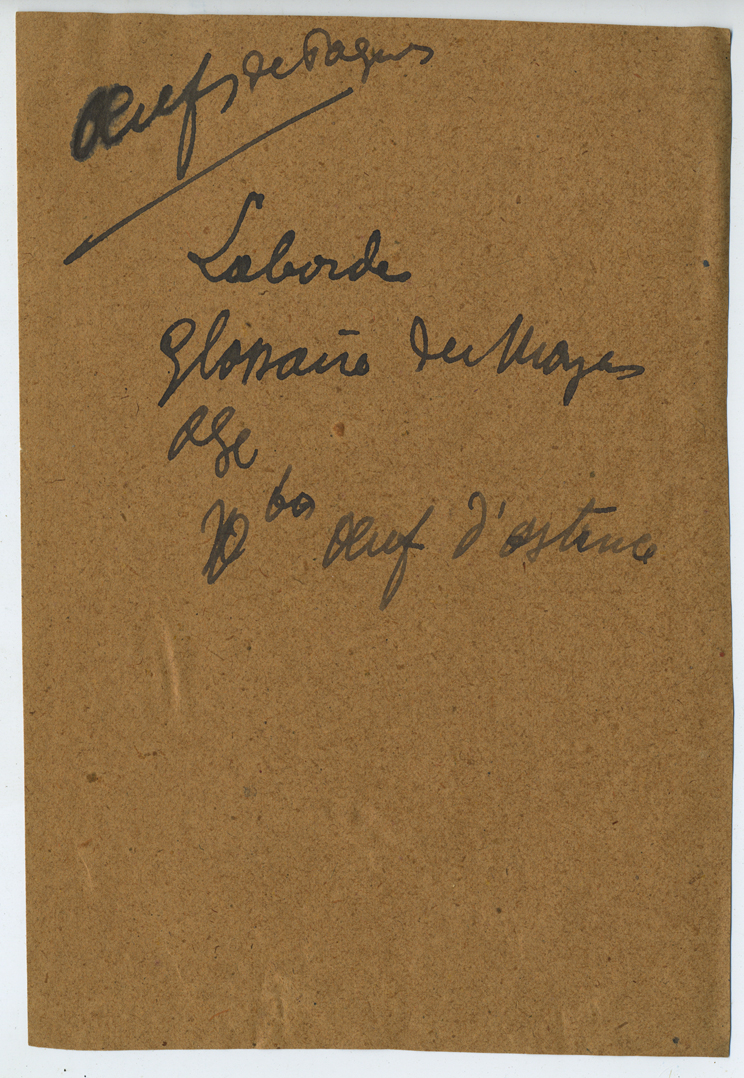 Oeufs de Pâques
Laborde
Glossaire du Moyen
age
Vbo oeuf d'